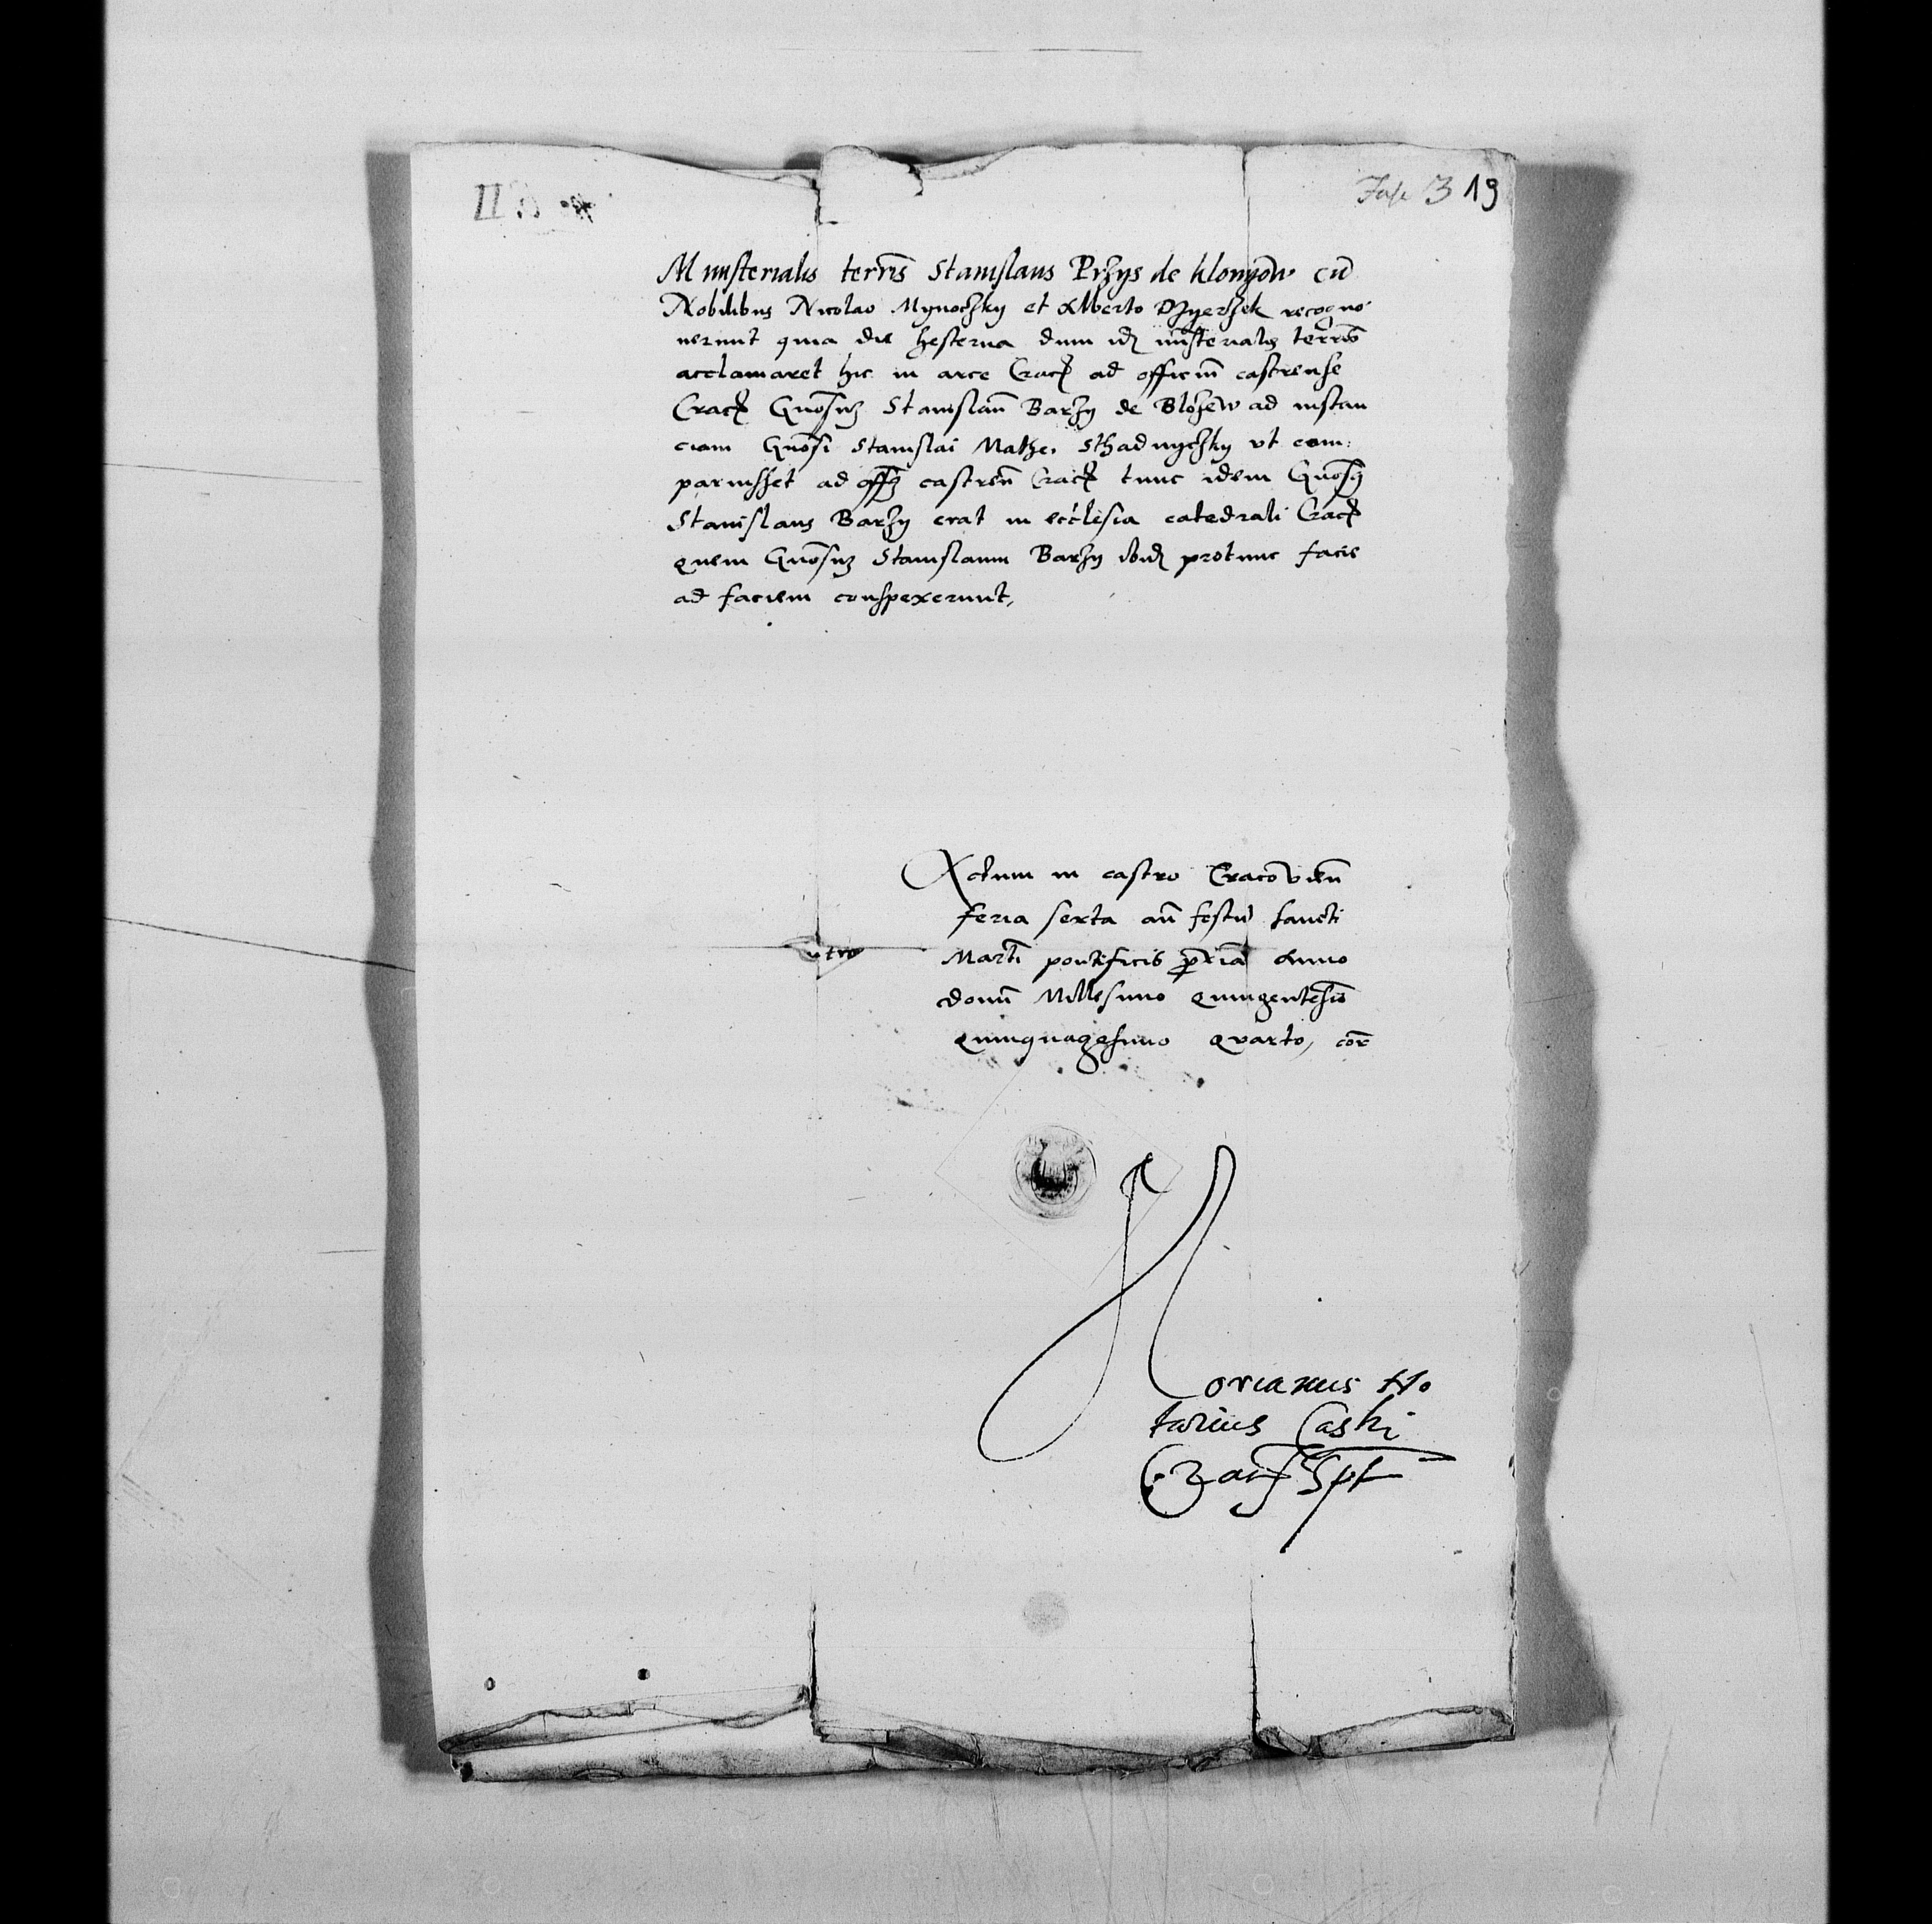 II
Fasc 3 19
Ministerialis terrīs Stanislaus Przys de Klonyow cū
Nobilibus Nicolao Mynoczky et Alberto Dzyerzek recogno
uerunt quia die hesterna dum idẽ mīsterialis terrīs
acclamaret hic in arce Crac̃ ad officiūm castrense
Crac̃ Gnōsum Stanislaūm Barzy de Blozew ad instan
ciam Gnōsi Stanislai Mathe. Sthadnyczky vt com:
paruisset ad offm̃ castreñ Crac̃ tunc idem Gnōsus
Stanislaus Barzy erat in ecclesia catedrali Crac̃
quem Gnōsum Stanislaum Barzy ibidẽ protunc facie
ad faciem conspexerunt,
Actum in castro Cracōvieñ
feria sexta añ festū sancti
Martī pontificis p̄riā Anno
domī Millesimo quingentesīo
quinquagesimo quarto, cōr
Florianus No
tarius Castri
Crac̃ Spt